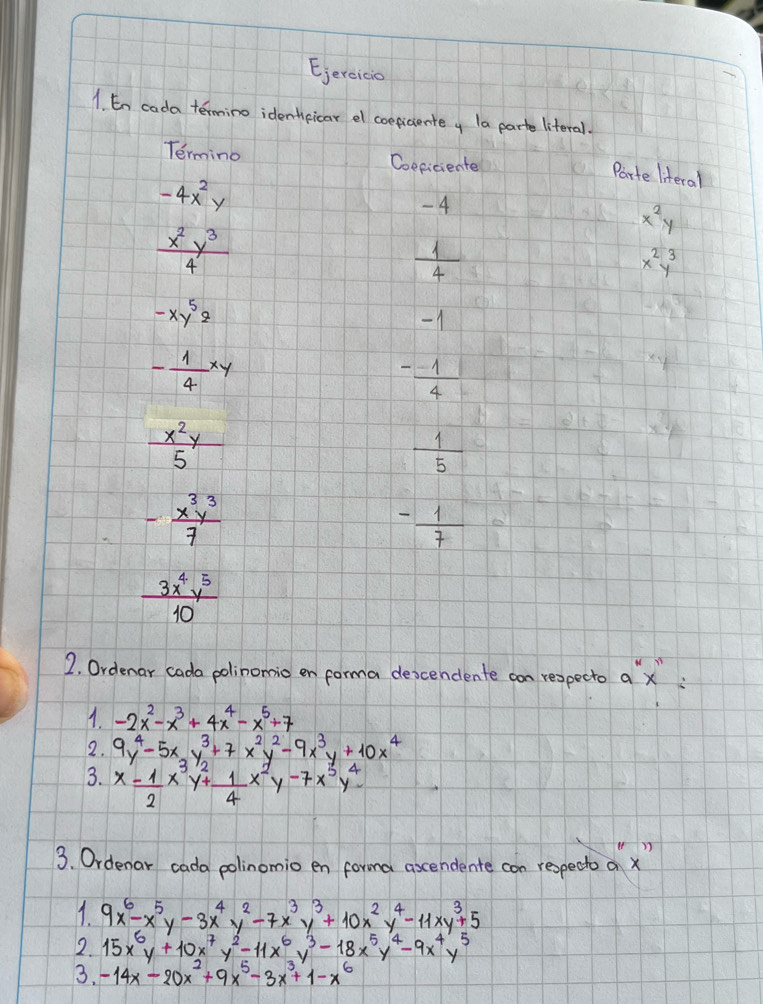 Ejercicio
1. En cada término identificar el coeficiente y la parte literal.
Término Coeficiente Parte literal
-4x²y -4 x²y
x²y³/4 1/4 x²y³
-xy⁵z -1
-1/4 xy -1/4
x²y/5 1/5
-x³y³/7 -1/7
3x⁴y⁵/10
2. Ordenar cada polinomio en forma descendente con respecto a "x" :
1. -2x²-x³+4x⁴-x⁵+7
2. 9y⁴-5xy³+7x²y²-9x³y+10x⁴
3. x-1/2x³y²+1/4x²y-7x⁵y⁴
3. Ordenar cada polinomio en forma ascendente con respecto a "x"
1. 9x⁶-x⁵y-3x⁴y²-7x³y³+10x²y⁴-11xy³+5
2. 15x⁶y+10x⁷y²-11x⁶y³-18x⁵y⁴-9x⁴y⁵
3. -14x-20x²+9x⁵-3x³+1-x⁶